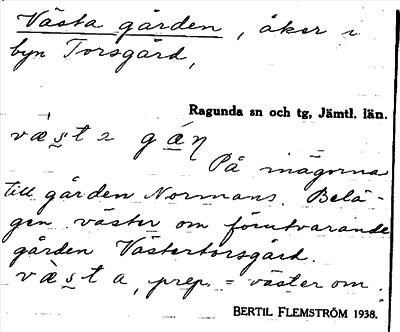 Västa gården, åker i
byn Torsgård,
Ragunda sn och tg, Jämtl. län.
væst a gáɳ
På inägorna
till gården Normans. Belä-
gen väster om förutvarande
gården Västertorsgård.
væst a, prep. = väster om.
BERTIL FLEMSTRÖM 1938.